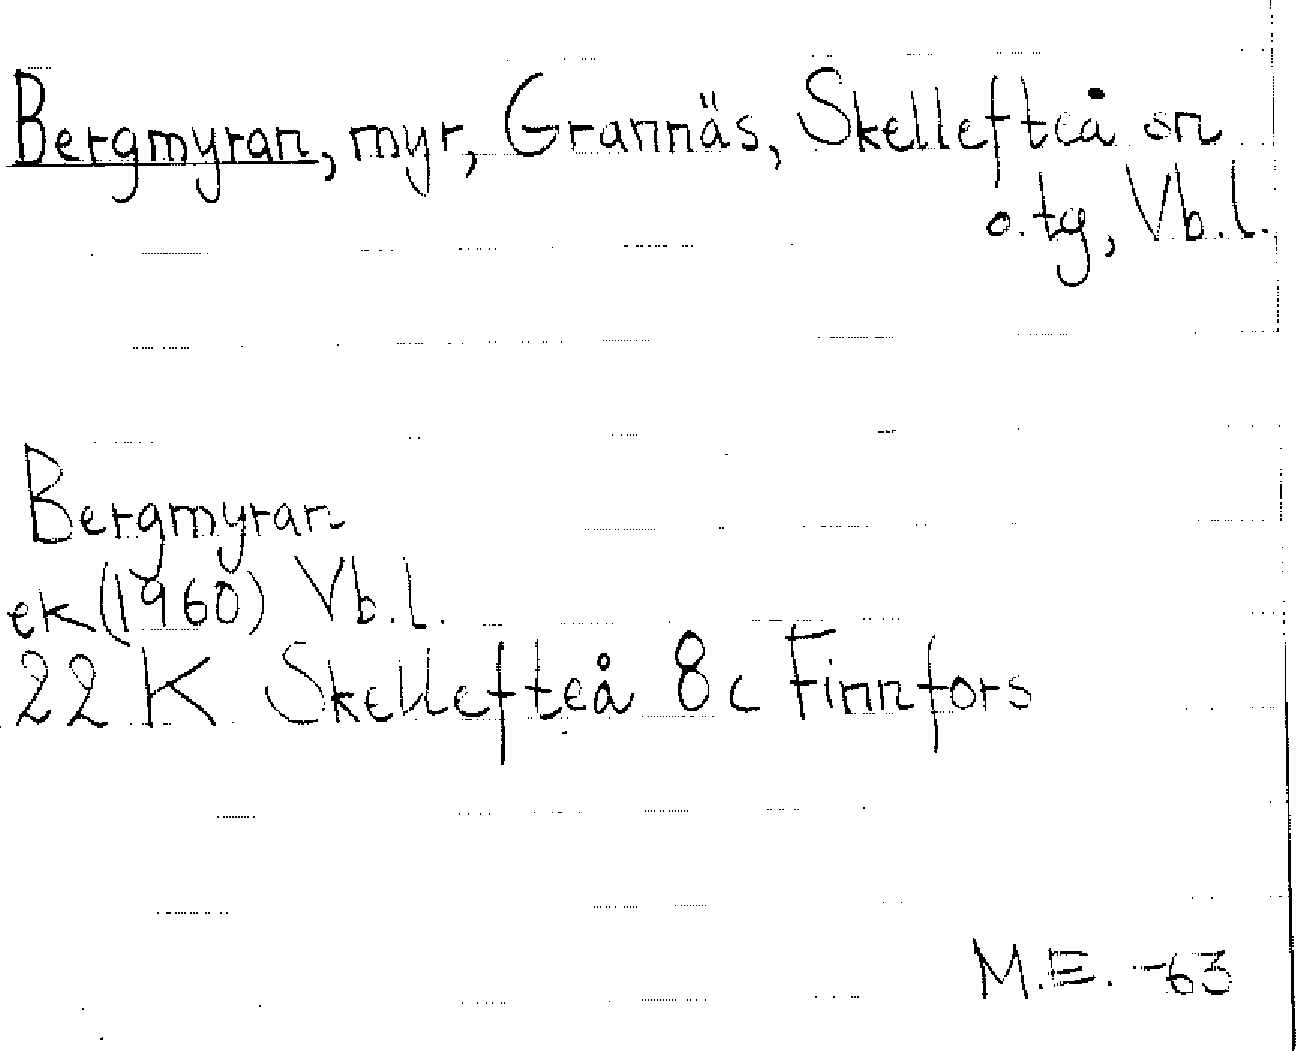 Bergmyran, myr, Grannäs, Skellefteå sn
o. tg, Vb.l.
Bergmyran
ek (1960) Vb.l.
22 K Skellefteå 8c Finnfors
M.E. -63